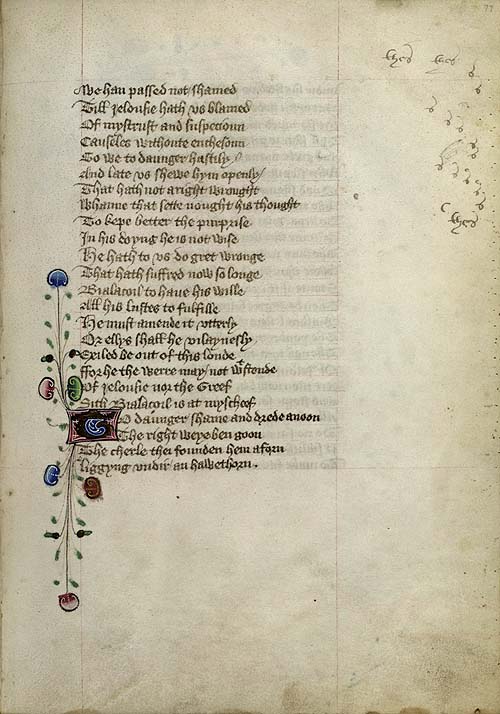 77
thes thes
We han passed not shamed
Till Jelousie hath vs blamed
Of mystrust and suspecioun
Causeles withoute enchesoun
Go we to daunger hastily
And late vs shewe hym openly
That hath not aright wrought
Whanne that sette nought his thought
To kepe better the purprise
In his doyng he is not wise
He hath to vs do gret wronge
That hath suffred now so longe
Bialacoil to have his wille
All his lustes to fulfille
He must amende it vtterly
Or ellys shall he vilaynesly
Exiled be out of this londe
ffor he the werre may not wstonde
Of Jelousie nor the Greef
Sith Bialacoil is at myscheef
To daunger shame and drede anoon
The right weye ben goon
The cherle thei founden hem aforn
liggyng vndir an hawethorn .
thes